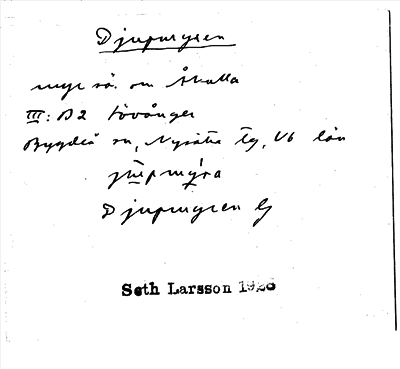 Djupmyren
myr sö. om Åkulla
III: B2 Lövånger
Bygdeå sn, Nysätra tg, Vb län
jupmýra
Djupmyren Gj
Seth Larsson 1928